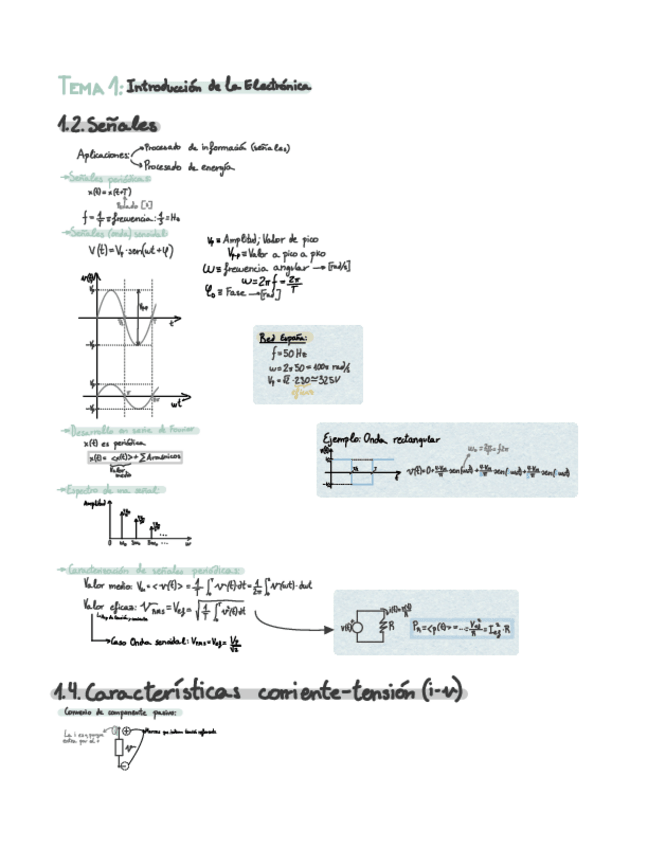 TEMA 1: Introducción de la Electrónica
1.2. Señales
Aplicaciones:
Procesado de información (señales)
Procesado de energía
→ Señales periódicas:
x(t) = x(t+T)
Periodo [s]
f = 1/T ≡ frecuencia: 1/s = Hz
→ Señales (onda) senoidal
V(t) = Vp · sen(ωt + φ)
Vp ≡ Amplitud; Valor de pico
Vpp ≡ Valor a pico a pico
ω ≡ frecuencia angular → [rad/s]
ω = 2πf = 2π/T
φ₀ ≡ Fase → [rad]
Vp
Vpp
t
-Vp
Vp
π
2π
-Vp
ωt
Red España:
f = 50 Hz
ω = 2π 50 = 100π rad/s
Vp = √2 · 230 ≃ 325V
eficaz
→ Desarrollo en serie de Fourier
x(t) es periódica
x(t) = <x(t)> + Σ Armónicos
Valor medio
Ejemplo: Onda rectangular
→ Espectro de una señal
Amplitud
0
ω
→ Caracterización de señales periódicas:
Valor medio: = <v(t)> = 1/T ∫₀ᵀ v(t)dt = 1/2π ∫ v(ωt) · dωt
Valor eficaz: V RMS = Vef = √(1/T ∫₀ᵀ v²(t)dt)
→ Caso Onda senoidal: VRMS = Vef = Vp/√2
v(t)
i(t) = v(t)/R
R
PR = <p(t)> = ... = Vef²/R = I²ef · R
1.4. Características corriente-tensión (i-v)
Convenio de componente pasivo:
v